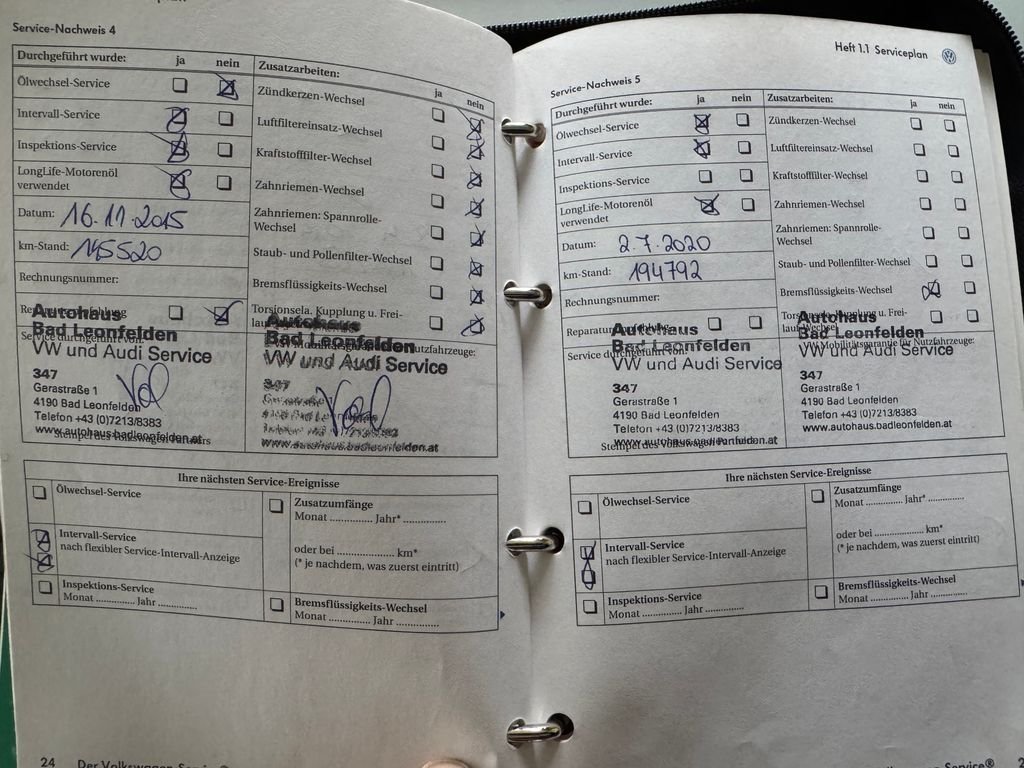 Service-Nachweis 4
Durchgeführt wurde: ja nein
Zusatzarbeiten: ja nein
Ölwechsel-Service
Intervall-Service
Inspektions-Service
LongLife-Motorenöl
verwendet
Datum: 16.11.2015
km-Stand: 145520
Rechnungsnummer:
Zündkerzen-Wechsel
Luftfiltereinsatz-Wechsel
Kraftstofffilter-Wechsel
Zahnriemen-Wechsel
Zahnriemen: Spannrolle-
Wechsel
Staub- und Pollenfilter-Wechsel
Bremsflüssigkeits-Wechsel
Torsionsela. Kupplung u. Frei-
Service durchgeführt von:
Autohaus
Bad Leonfelden
VW und Audi Service
347
Gerastraße 1
4190 Bad Leonfelden
Telefon +43 (0)7213/8383
www.autohaus.badleonfelden.at
Autohaus
Bad Leonfelden
VW und Audi Service
347
www.autohaus.badleonfelden.at
Ihre nächsten Service-Ereignisse
Ölwechsel-Service
Intervall-Service
nach flexibler Service-Intervall-Anzeige
Inspektions-Service
Monat ............. Jahr .............
Zusatzumfänge
Monat .............. Jahr* ..............
oder bei .................... km*
(* je nachdem, was zuerst eintritt)
Bremsflüssigkeits-Wechsel
Monat ............. Jahr .............
24 Der Volkswagen
Heft 1.1 Serviceplan
Service-Nachweis 5
Durchgeführt wurde: ja nein
Zusatzarbeiten: ja nein
Ölwechsel-Service
Intervall-Service
Inspektions-Service
LongLife-Motorenöl
verwendet
Datum: 2.7.2020
km-Stand: 194792
Rechnungsnummer:
Zündkerzen-Wechsel
Luftfiltereinsatz-Wechsel
Kraftstofffilter-Wechsel
Zahnriemen-Wechsel
Zahnriemen: Spannrolle-
Wechsel
Staub- und Pollenfilter-Wechsel
Bremsflüssigkeits-Wechsel
Torsionsela. Kupplung u. Frei-
Service durchgeführt von:
VW Mobilitätsgarantie für Nutzfahrzeuge:
Autohaus
Bad Leonfelden
VW und Audi Service
347
Gerastraße 1
4190 Bad Leonfelden
Telefon +43 (0)7213/8383
www.autohaus.badleonfelden.at
Stempel des Volkswagen Partners
Autohaus
Bad Leonfelden
VW und Audi Service
347
Gerastraße 1
4190 Bad Leonfelden
Telefon +43 (0)7213/8383
www.autohaus.badleonfelden.at
Ihre nächsten Service-Ereignisse
Ölwechsel-Service
Intervall-Service
nach flexibler Service-Intervall-Anzeige
Inspektions-Service
Monat ............. Jahr .............
Zusatzumfänge
Monat .............. Jahr* ..............
oder bei .................... km*
(* je nachdem, was zuerst eintritt)
Bremsflüssigkeits-Wechsel
Monat ............. Jahr .............
Service®